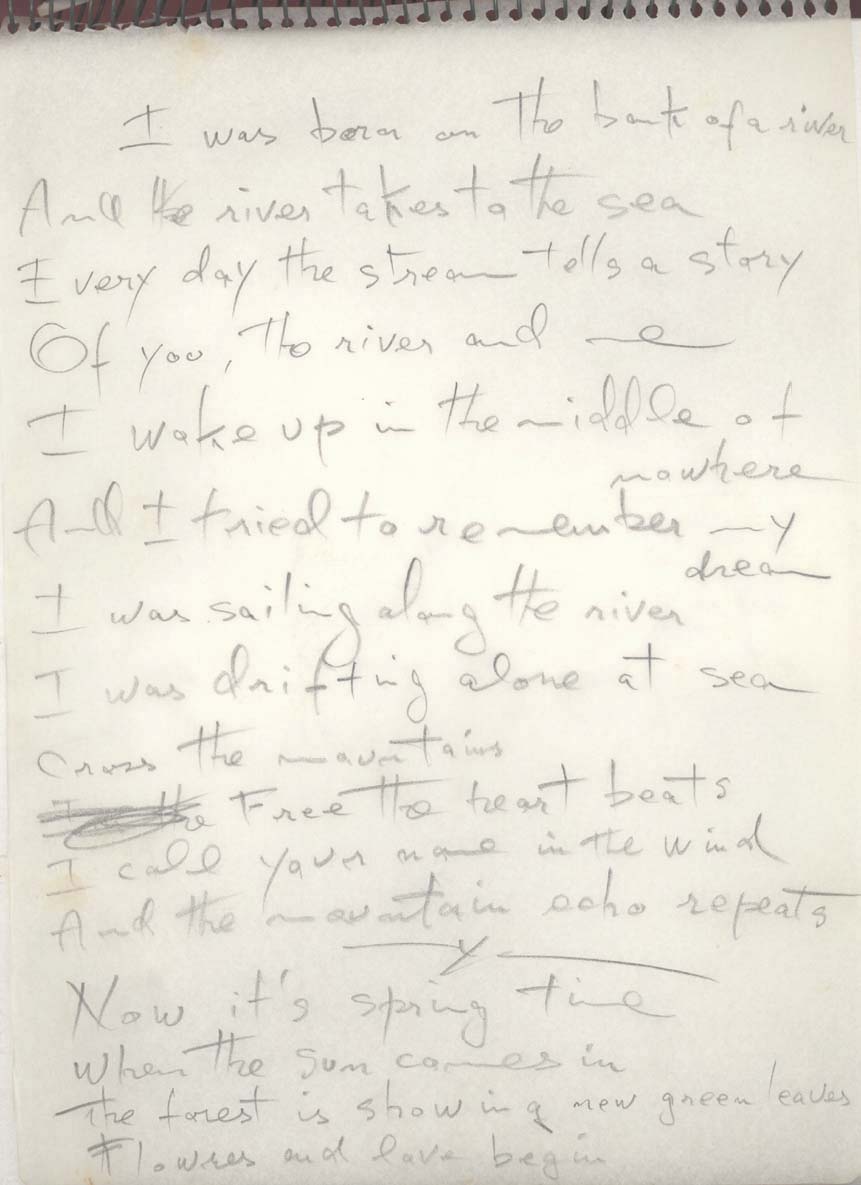 I was born on the bank of a river
And the river takes to the sea
Every day the stream tells a story
Of you, the river and me
I wake up in the middle of
nowhere
And I tried to remember my
dream
I was sailing along the river
I was drifting alone at sea
Cross the mountains
Free the heart beats
I call your name in the wind
And the mountain echo repeats
Now it's spring time
when the sun comes in
The forest is showing new green leaves
Flowres and love begin